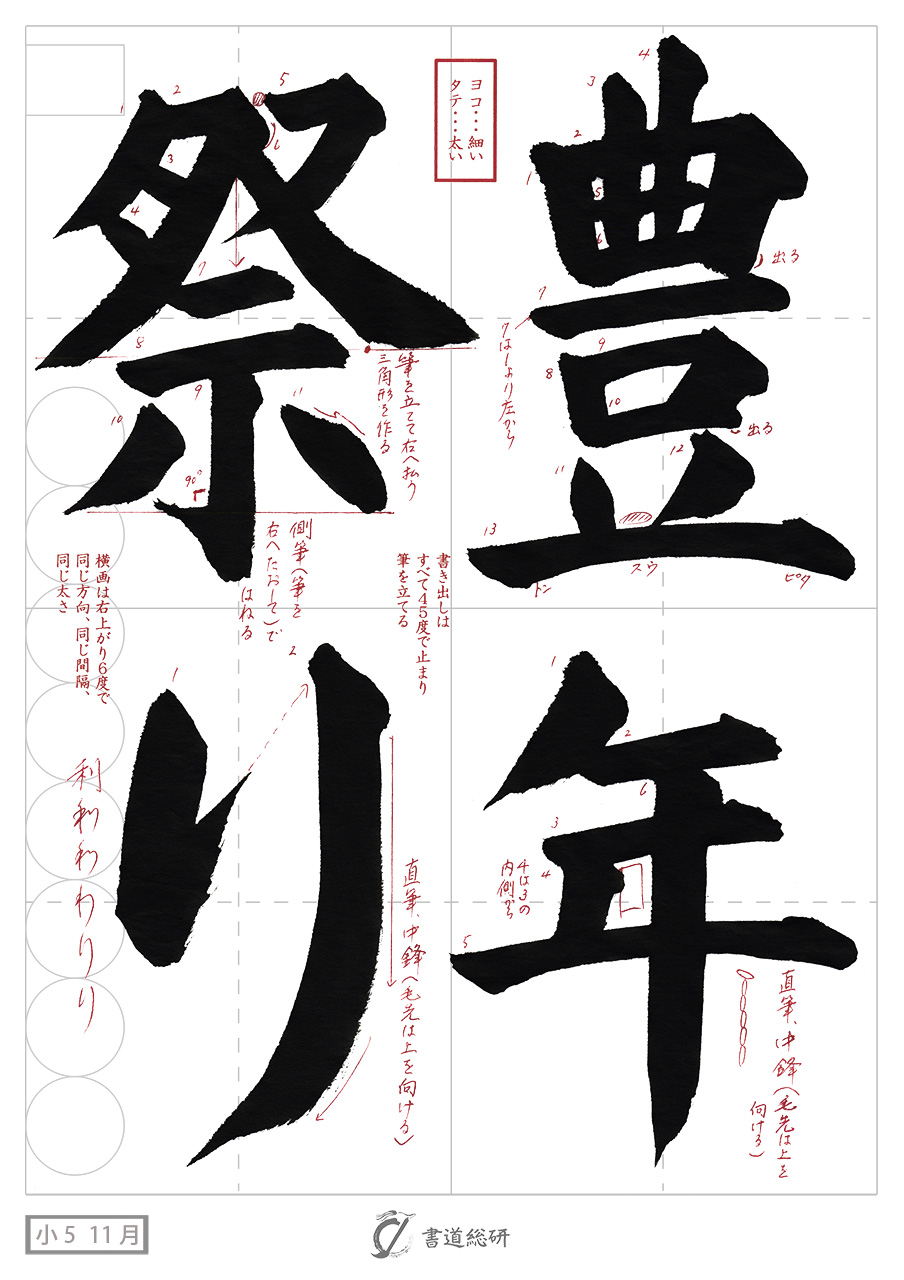 豊年
祭り
ヨコ・・・細い
タテ・・・太い
出る
7は1より左から
出る
トン
スウ
ピタ
筆を立てて右へ払う
三角形を作る
90°
側筆(筆を
右へたおして)で
はねる
書き出しは
すべて45度で止まり
筆を立てる
横画は右上がり6度で
同じ方向、同じ間隔、
同じ太さ
4は3の
内側から
直筆、中鋒(毛先は上を
向ける)
直筆、中鋒(毛先は上を向ける)
利
わりり
小5 11月
書道総研